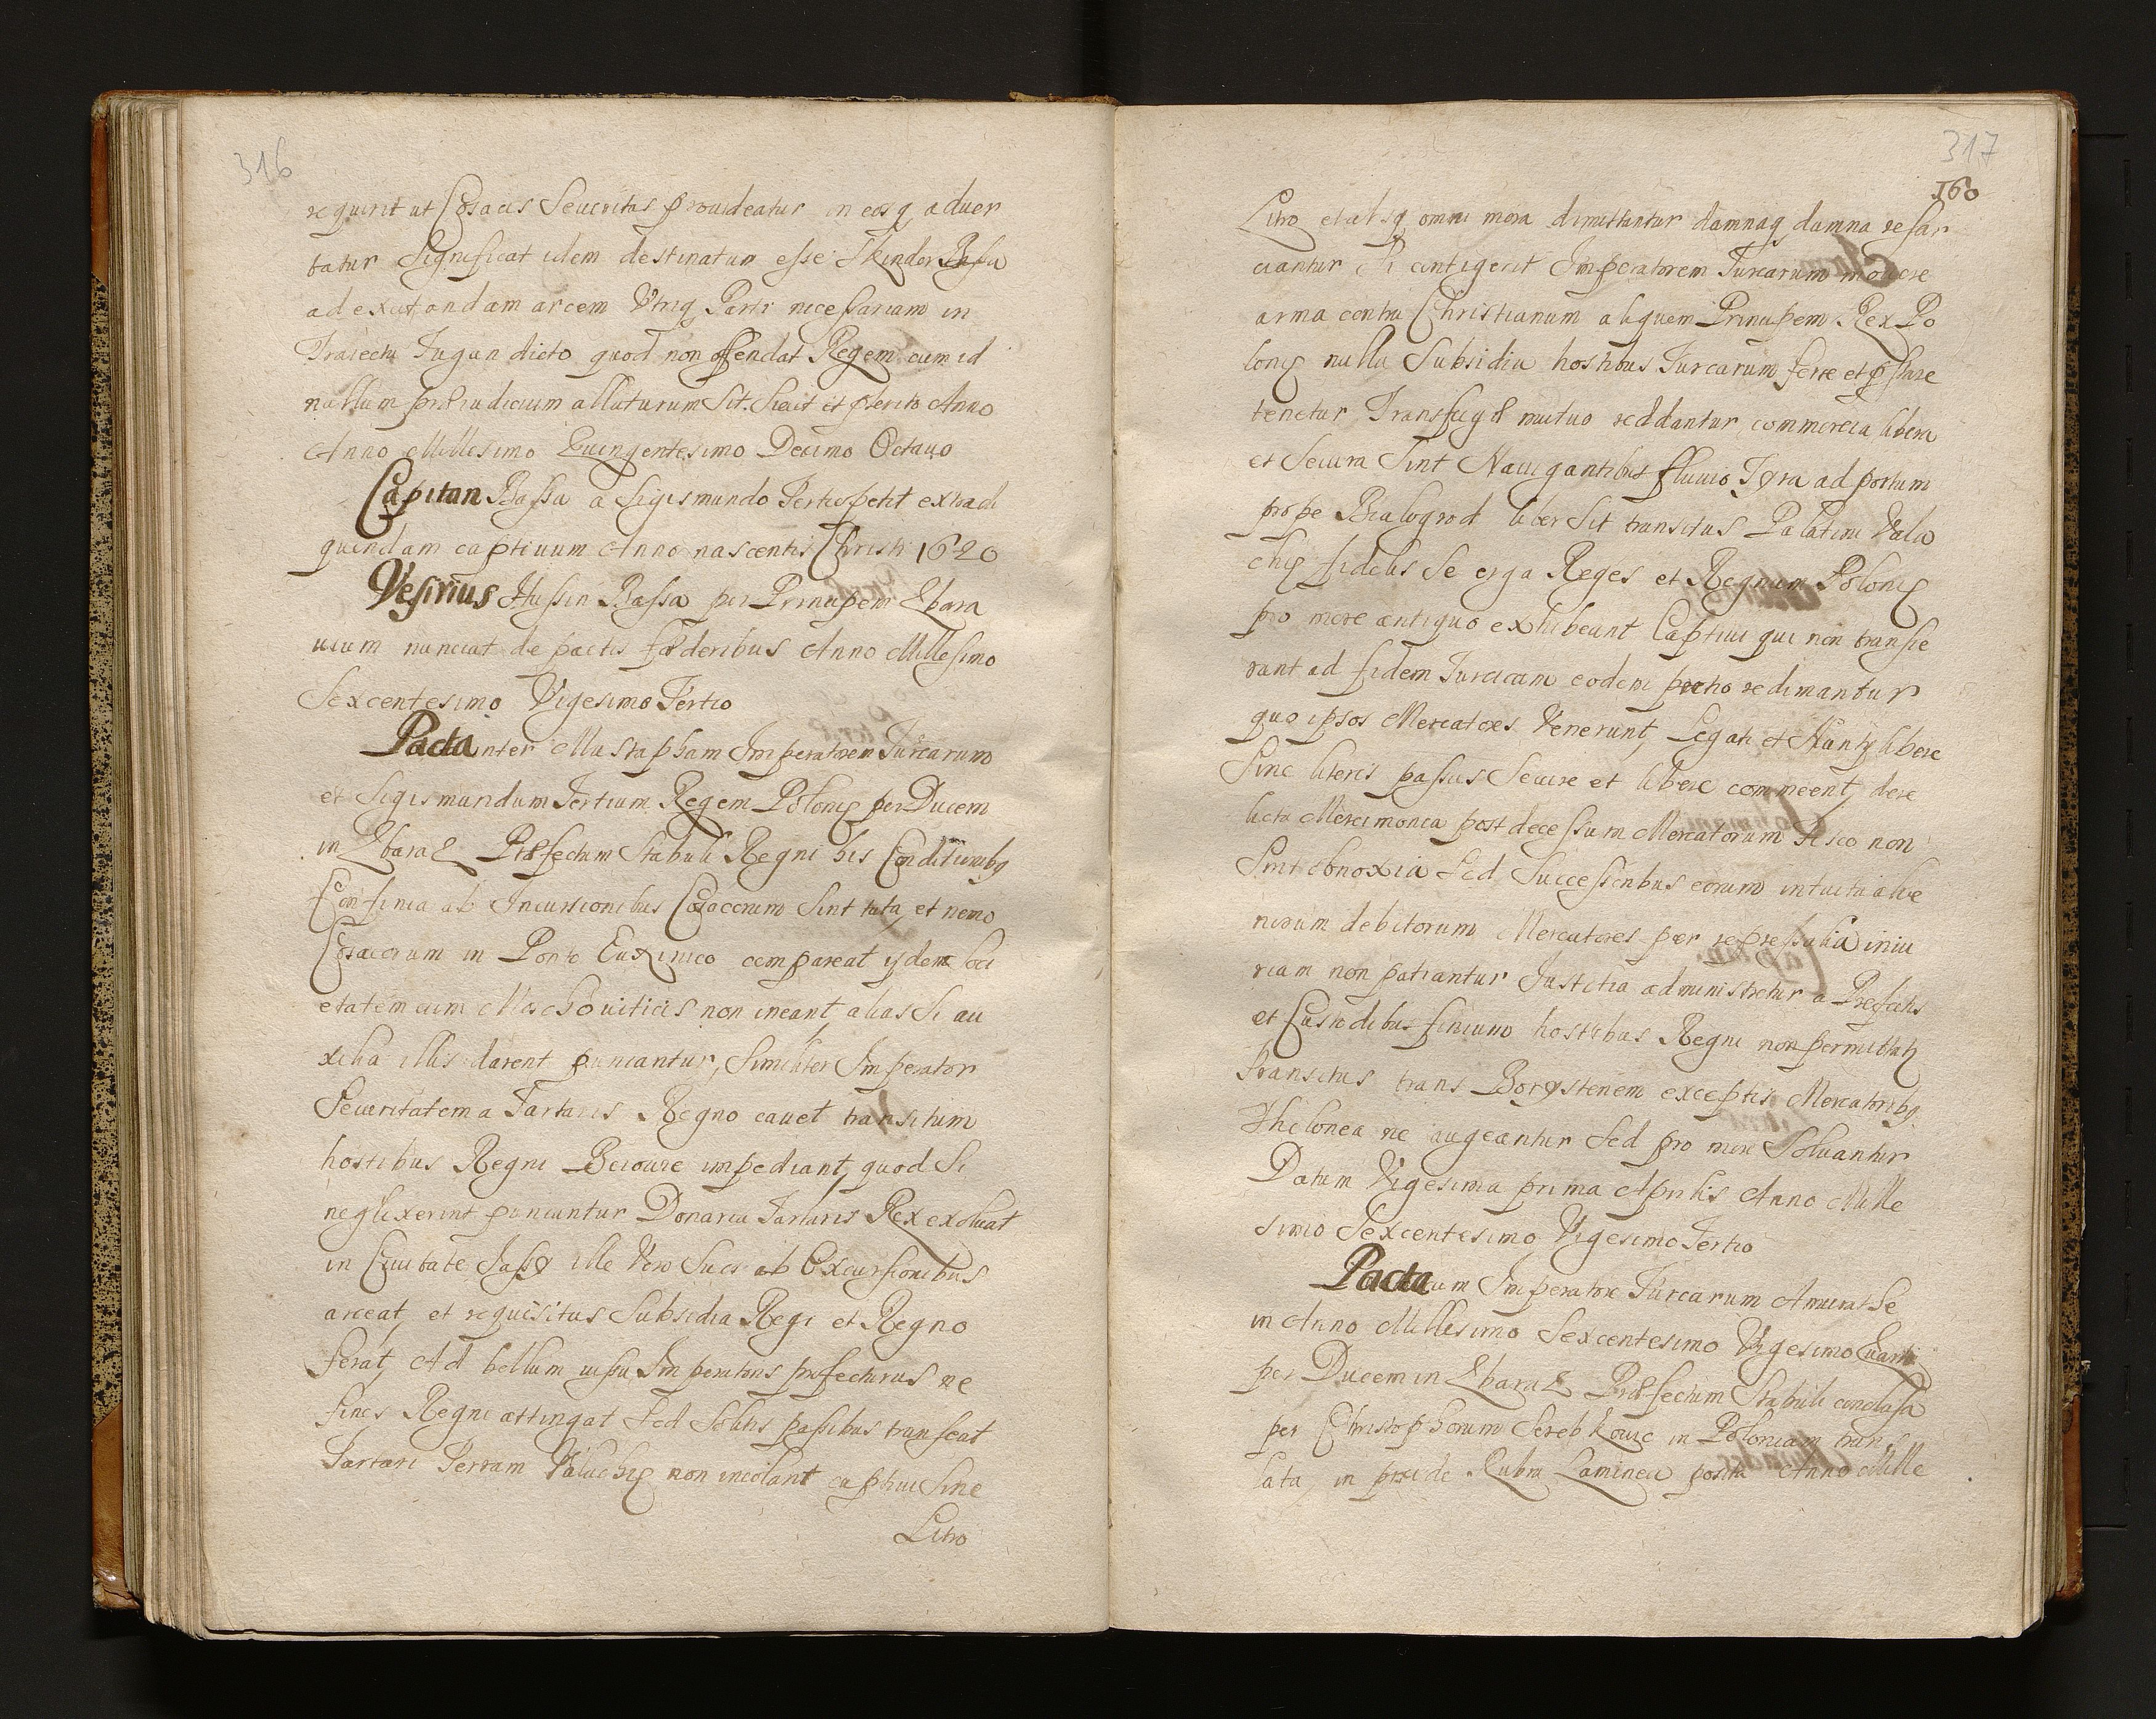 316
requirit ut Cosacis Seueritas prouideatur in eosq aduer
tatur Significat idem destinatum esse Skinder Bassa
ad excitandam arcem Utriq Parti necessariam in
Traiectu Tugan dicto quod non offendat Regem cum id
nullum præiudicium allaturum Sit. Sicut et petito Anno
Anno Millesimo Quingentesimo Decimo Octauo
Capitan Bassa a Sigismundo Tertio petit extradi
quendam captiuum Anno nascentis Christi 1620
Vesirius Hussin Bassa per Principem Zbara
uium nunciat de pactis fæderibus Anno Millesimo
Sexcentesimo Vigesimo Tertio
Pacta inter Mustapham Imperatorem Turcarum
et Sigismundum Tertium Regem Polonię per Ducem
in Zbaraz Præfectum Stabuli Regni his Conditionibq
Confinia ab Incursionibus Cosacorum Sint tuta, et nemo
Cosacorum in Ponto Euxinico compareat ijdem soci
etatem cum Moschouiticis non ineant, alias Si au
xilia illis darent puniantur, Similiter Imperator
Securitatem a Tartaris Regno cauet transitum
hostibus Regni Beroure impediant, quod Si
neglixerint puniuntur Donaria Tartaris Rex exoluat
in Ciuitate Jassÿ ille Vero Suos ab Excursionibus
arceat, et requisitus Subsidia Regi et Regno
ferat, Ad bellum iussu Imperatoris profecturus ne
fines Regni attingat Sed Solitis passibus transeat
Tartari Terram Valachię non incolant captiui Sine
Litro
317
160
Litro et absq omni mora dimittantur damnaq damna resar
ciantur Si contigerit Imperatorem Turcarum mouere
arma contra Christianum aliquem Principem Rex Po
lonię nulla Subsidia hostibus Turcarum ferre et pstare
tenetur Transfugæ mutuo reddantur, commercia libera
et Secura Sint Nauigantibus fluuio Tyra ad portum
prope Bialogrod liber Sit transitus Palatini Vala
chię fideles Se erga Reges et Regnum Polonię
pro more antiquo exhibeant Captiui qui non transie
rant ad fidem Turcicam eodem pretio redimantur
quo ipsos Mercatores Venerunt, Legati et Nuntij libere
Sine literis passus Secure et libere commeent, dere
licta Mercimonia post decessum Mercatorum fisco non
Sint obnoxia Sed Successoribus eorum intuitu alie
norum debitorum Mercatores per repressalia iniu
riam non patiantur Justitia administretur a Prefectis
et Custodibus finium hostibus Regni non permittatq
transitus trans Borystenem exceptis Mercatoribq
Thelonea ne augeantur Sed pro more Soluantur
Datum Vigesima prima Aprilis Anno Mille
simo Sexcentesimo Vigesimo Tertio
Pacta cum Imperatore Turcarum Amurathe
in Anno Millesimo Sexcentesimo Vigesimo Quarto
per Ducem in Zbaraz Præfectum Stabuli conclusa
per Christophorum Serebkowic in Poloniam trans
lata, in pixide Rubra Laminea posita Anno Mille